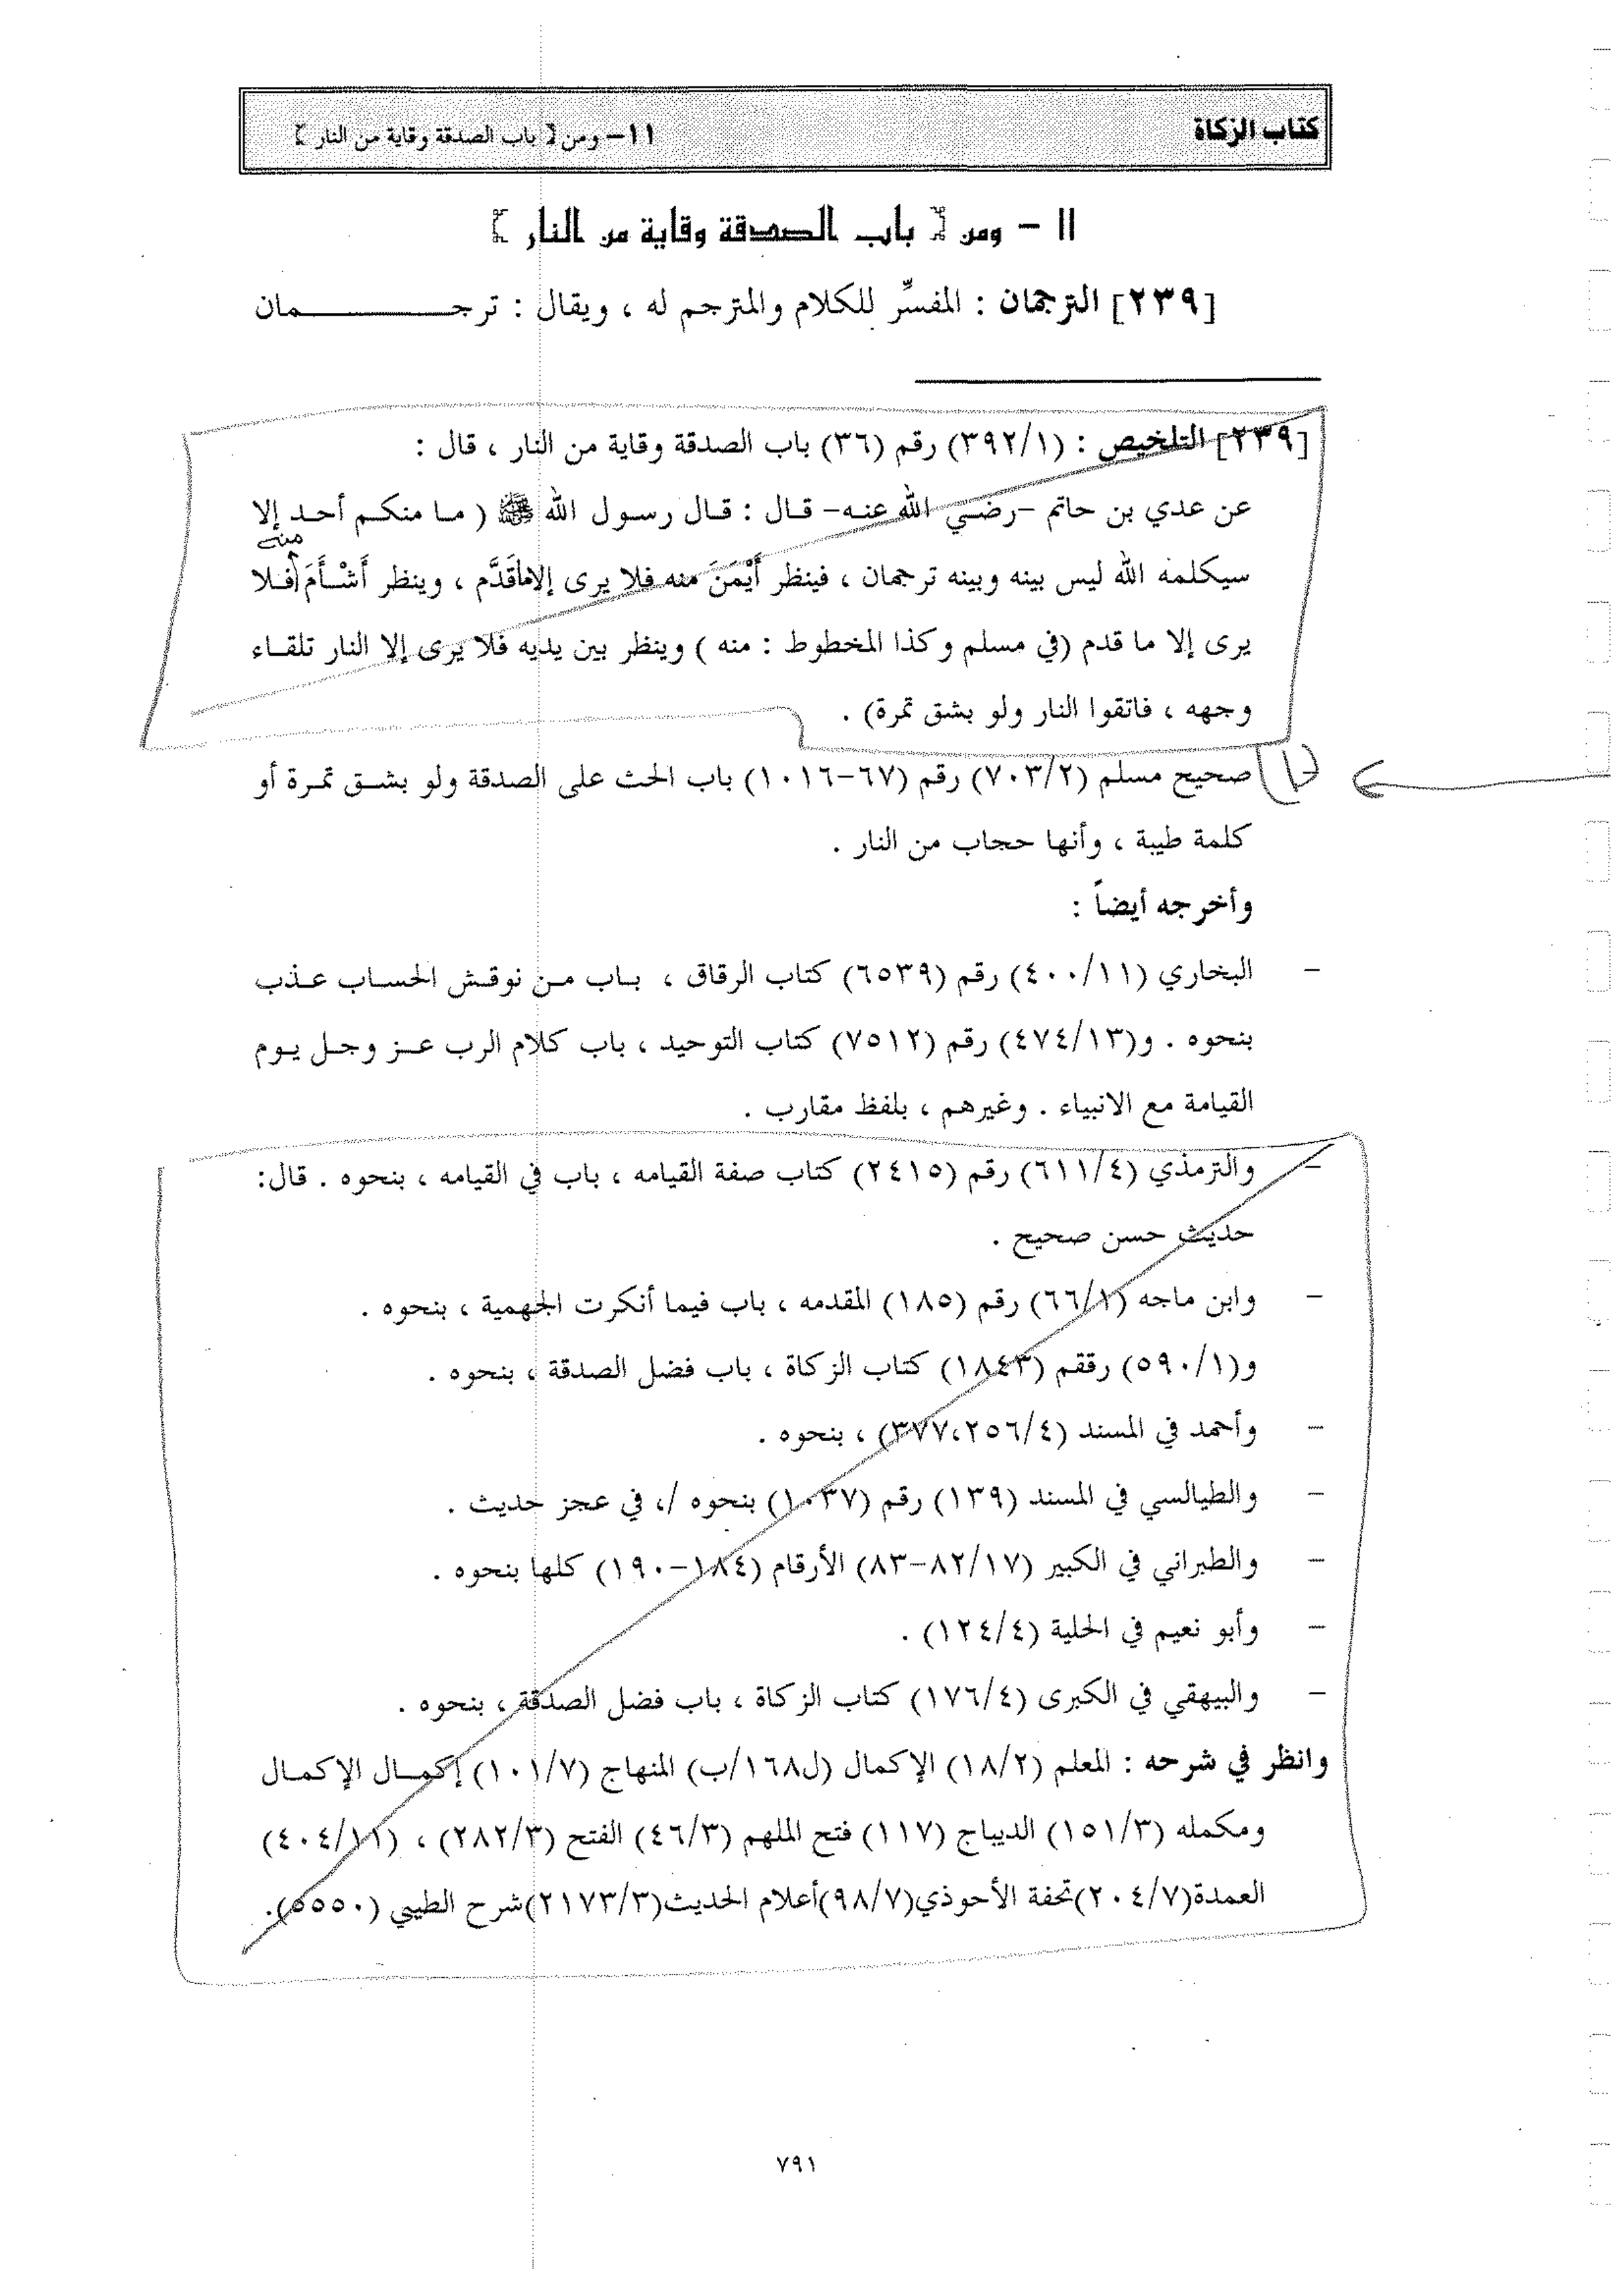 كتاب الزكاة
١١- ومن [ باب الصدقة وقاية من النار ]
١١ - ومن [ باب الصدقة وقاية من النار ]
[٢٣٩] الترجمان : المفسِّر للكلام والمترجم له ، ويقال : ترجـــــــــمان
[٢٣٩] التلخيص : (٣٩٢/١) رقم (٣٦) باب الصدقة وقاية من النار ، قال :
عن عدي بن حاتم -رضي الله عنه- قال : قال رسول الله ﷺ ( ما منكم أحد إلا
منه
سيكلمه الله ليس بينه وبينه ترجمان ، فينظر أَيْمَنَ منه فلا يرى إلا ما قَدَّم ، وينظر أَشْأَمَ فلا
يرى إلا ما قدم (في مسلم وكذا المخطوط : منه ) وينظر بين يديه فلا يرى إلا النار تلقاء
وجهه ، فاتقوا النار ولو بشق تمرة) .
صحيح مسلم (٧٠٣/٢) رقم (٦٧-١٠١٦) باب الحث على الصدقة ولو بشق تمرة أو
كلمة طيبة ، وأنها حجاب من النار .
وأخرجه أيضاً :
- البخاري (٤٠٠/١١) رقم (٦٥٣٩) كتاب الرقاق ، باب من نوقش الحساب عذب
بنحوه . و(٤٧٤/١٣) رقم (٧٥١٢) كتاب التوحيد ، باب كلام الرب عز وجل يوم
القيامة مع الانبياء . وغيرهم ، بلفظ مقارب .
- والترمذي (٦١١/٤) رقم (٢٤١٥) كتاب صفة القيامه ، باب في القيامه ، بنحوه . قال:
حديث حسن صحيح .
- وابن ماجه (٦٦/١) رقم (١٨٥) المقدمه ، باب فيما أنكرت الجهمية ، بنحوه .
و(٥٩٠/١) رققم (١٨٤٣) كتاب الزكاة ، باب فضل الصدقة ، بنحوه .
- وأحمد في المسند (٣٧٧،٢٥٦/٤) ، بنحوه .
- والطيالسي في المسند (١٣٩) رقم (١٠٣٧) بنحوه /، في عجز حديث .
- والطبراني في الكبير (٨٢/١٧-٨٣) الأرقام (١٨٤-١٩٠) كلها بنحوه .
- وأبو نعيم في الحلية (١٢٤/٤) .
- والبيهقي في الكبرى (١٧٦/٤) كتاب الزكاة ، باب فضل الصدقة ، بنحوه .
وانظر في شرحه : المعلم (١٨/٢) الإكمال (ل١٦٨/ب) المنهاج (١٠١/٧) إكمال الإكمال
ومكمله (١٥١/٣) الديباج (١١٧) فتح الملهم (٤٦/٣) الفتح (٢٨٢/٣) ، (٤٠٤/١١)
العمدة(٢٠٤/٧)تحفة الأحوذي(٩٨/٧)أعلام الحديث(٢١٧٣/٣)شرح الطيبي (٥٥٥٠).
٧٩١